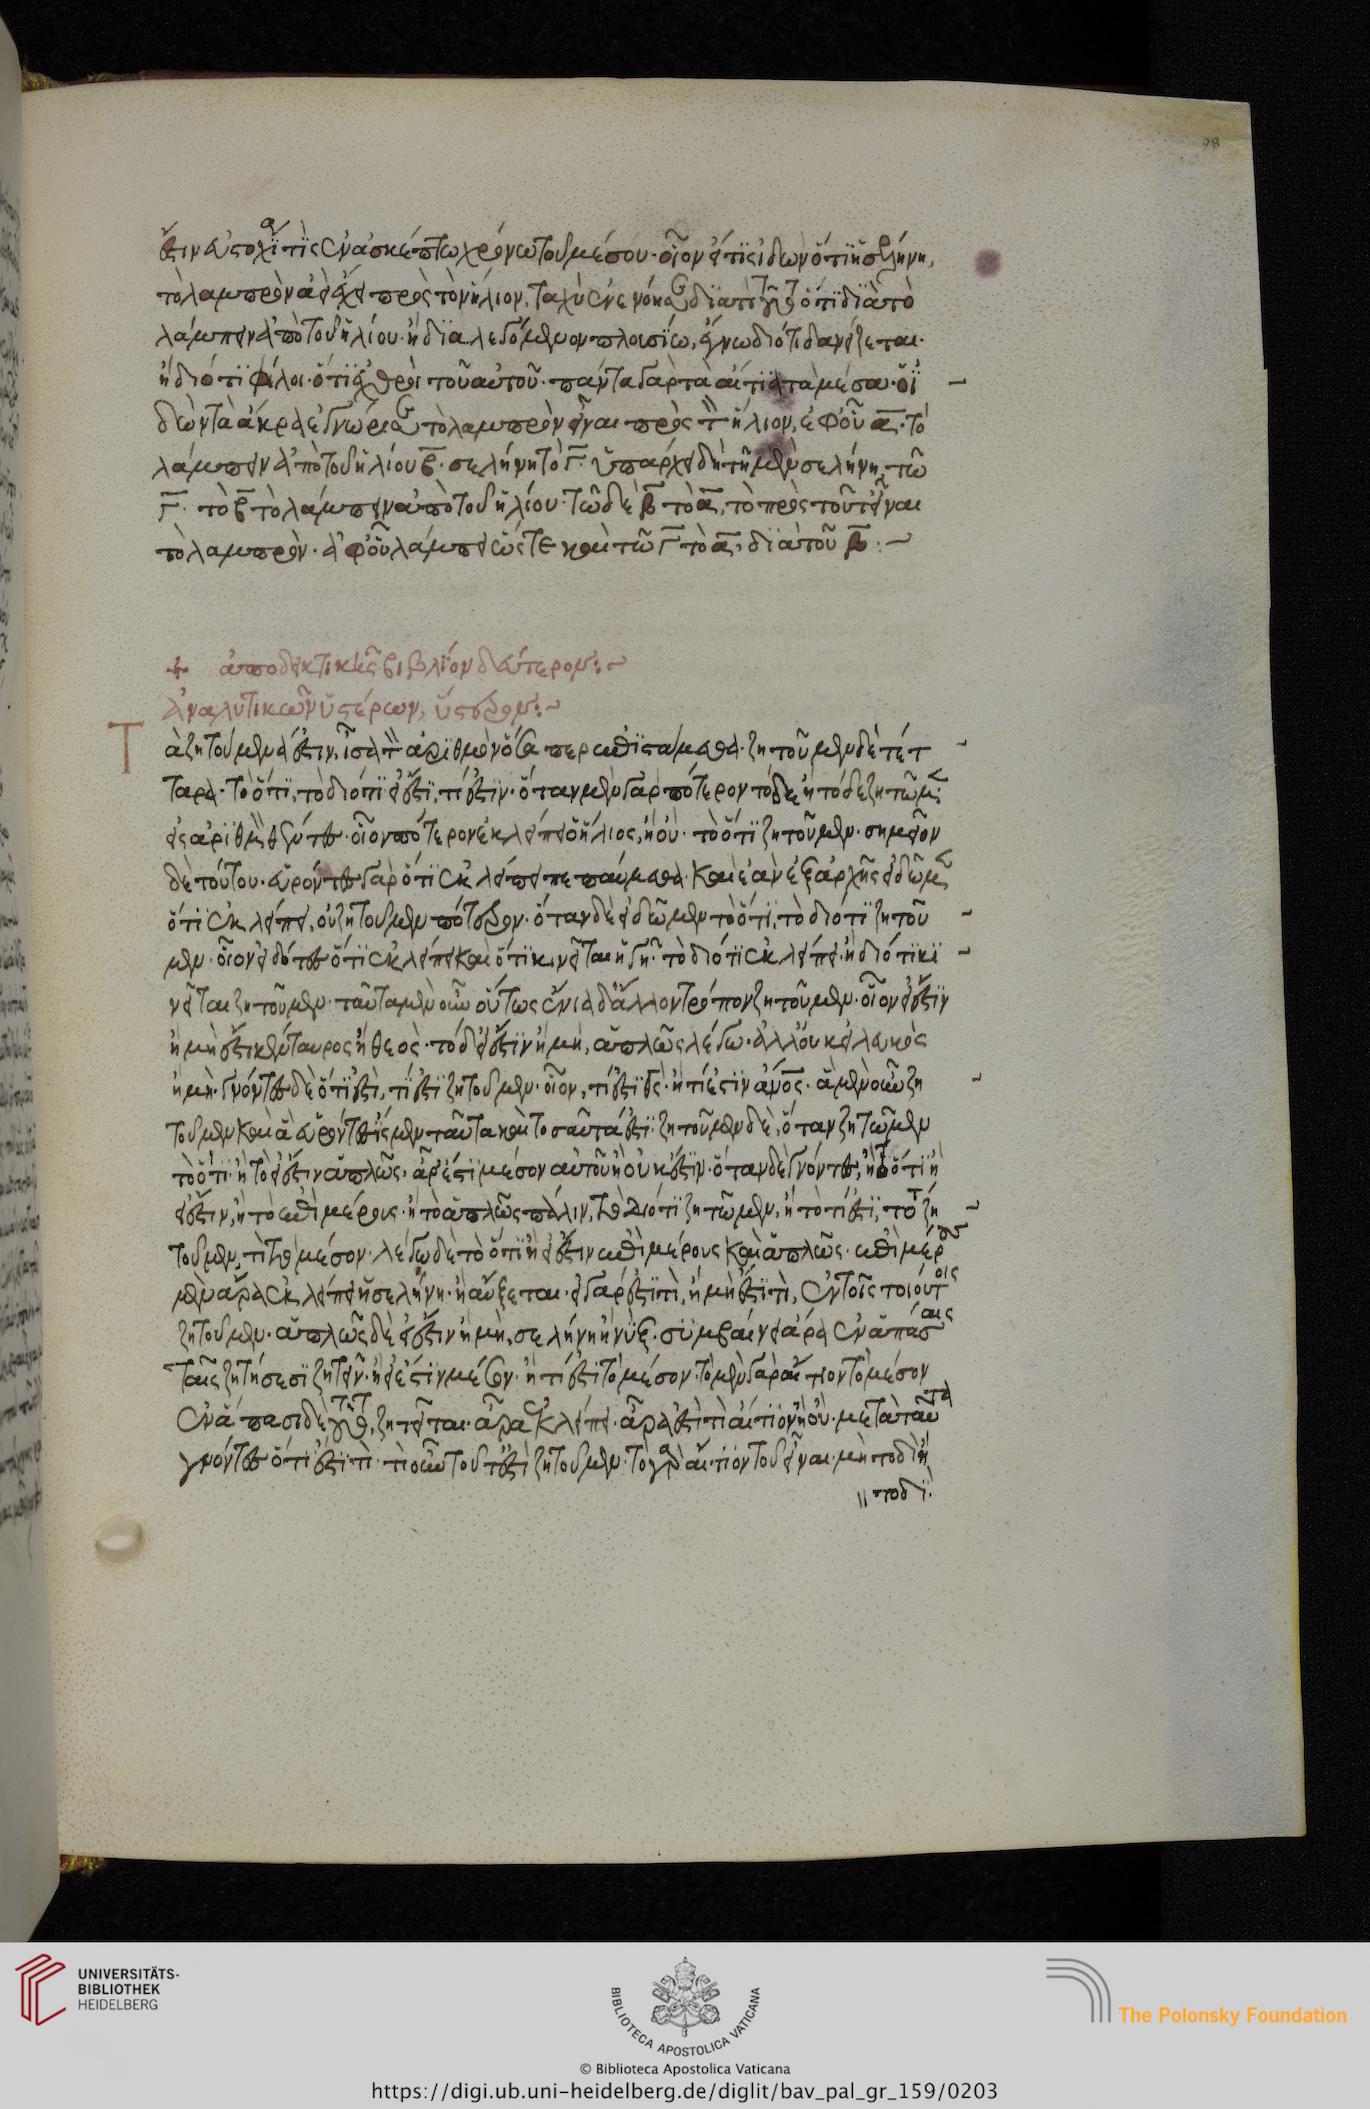 ἔστιν εὐστοχία τίς ἐν ἀσκέπτω χρόνω τοῦ μέσου· οἷον εἴ τις ἰδὼν ὅτι ἡ σελήνη,
τὸ λαμπρὸν ἀεὶ ἔχει πρὸς τὸν ἥλιον, ταχὺ ἐνενόησε διατί τοῦτο ὅτι διὰ τὸ
λάμπειν ἀπὸ τοῦ ἡλίου· ἢ διαλεγόμενον πλουσίω, ἔγνω διότι δανείζεται·
ἢ διότι φίλοι· ὅτι ἐχθροὶ τοῦ αὐτοῦ· πάντα γὰρ τὰ αἴτια τὰ μέσα· ὁ ἰ
δὼν τὰ ἄκρα ἐγνώρισε τὸ λαμπρὸν εἶναι πρὸς τὸν ἥλιον, ἐφ' οὗ α· τὸ
λάμπειν ἀπὸ τοῦ ἡλίου β· σελήνη τὸ γ· ὑπάρχει δὴ τῆ μὲν σελήνη, τῶ
γ· τὸ β τὸ λάμπειν ἀπὸ τοῦ ἡλίου· τῶ δὲ β τὸ α, τὸ πρὸς τοῦτ' εἶναι
τὸ λαμπρὸν· ἀφ' οὗ λάμπει ὥστε καὶ τῶ γ τὸ α, διὰ τοῦ β :~
+ ἀποδεικτικῆς βιβλίον δεύτερον :~
ἀναλυτικῶν ὑστέρων, ὕστερον :~
Τὰ ζητούμενά ἐστιν, ἴσα τὸν ἀριθμὸν ὅσα περ ἐπιστάμεθα· ζητοῦμεν δὲ τέτ
ταρα· τὸ ὅτι, τὸ διότι εἰ ἔστι, τί ἐστιν· ὅταν μὲν γὰρ πότερον τόδε ἢ τόδε ζητῶμεν
εἰς ἀριθμὸν θέντες· οἷον πότερον ἐκλείπει ὁ ἥλιος, ἢ οὐ· τὸ ὅτι ζητοῦμεν· σημεῖον
δὲ τούτου· εὑρόντες γὰρ ὅτι ἐκλείπει πεπαύμεθα· καὶ ἐὰν ἐξ ἀρχῆς εἰδῶμεν
ὅτι ἐκλείπει, οὐ ζητοῦμεν πότερον· ὅταν δὲ εἰδῶμεν τὸ ὅτι, τὸ διότι ζητοῦ
μεν· οἷον εἰδότες ὅτι ἐκλείπει καὶ ὅτι κινεῖται ἡ γῆ· τὸ διότι ἐκλείπει· ἢ διότι κι
νεῖται ζητοῦμεν· ταῦτα μὲν οὖν οὕτως ἔνια δ' ἄλλον τρόπον ζητοῦμεν· οἷον εἰ ἔστιν
ἢ μὴ ἔστι κένταυρος ἢ θεὸς· τὸ δ' εἰ ἔστιν ἢ μὴ, ἁπλῶς λέγω· ἀλλ' οὐκ εἰ λευκὸς
ἢ μὴ· γνόντες δὲ ὅτι ἐστὶ, τί ἐστι ζητοῦμεν· οἷον, τί ἐστι θς· ἢ τί ἐστιν ἄνος· ἃ μὲν οὖν ζη
τοῦμεν καὶ ἃ εὑρόντες ἴσμεν ταῦτα καὶ τοσαῦτά ἐστι· ζητοῦμεν δὲ, ὅταν ζητῶμεν
τὸ ὅτι· ἢ τὸ εἰ ἔστιν ἁπλῶς· ἆρ' ἔστι μέσον αὐτοῦ ἢ οὐκ ἔστιν· ὅταν δὲ γνόντες, ἢ τὸ ὅτι ἢ
εἰ ἔστιν, ἢ τὸ ἐπὶ μέρους· ἢ τὸ ἁπλῶς πάλιν, τὸ διότι ζητῶμεν, ἢ τὸ τί ἐστι, τότε ζη
τοῦμεν, τί τὸ μέσον· λέγω δὲ τὸ ὅτι ἢ εἰ ἔστιν ἐπὶ μέρους καὶ ἁπλῶς· ἐπὶ μέρους
μὲν ἆρα ἐκλείπει ἡ σελήνη· ἢ αὔξεται· εἰ γάρ ἐστι τὶ, ἢ μὴ ἔστι τὶ, ἐν τοῖς τοιούτοις
ζητοῦμεν· ἁπλῶς δὲ εἰ ἔστιν ἢ μὴ, σελήνη ἢ νύξ· συμβαίνει ἄρα ἐν ἁπάσαις
ταῖς ζητήσεσι ζητεῖν· ἢ εἰ ἔστιν μέσον· ἢ τί ἐστι τὸ μέσον· τὸ μὲν γὰρ αἴτιον τὸ μέσον
ἐν ἅπασι δὲ τοῦτο, ζητεῖται· ἆρα ἐκλείπει· ἆρα ἐστὶ τὶ αἴτιον ἢ οὐ· μετὰ ταῦτα
γνόντες ὅτι ἐστί τι· τί οὖν τοῦτ' ἐστὶ ζητοῦμεν· τὸ γὰρ αἴτιον τοῦ εἶναι· μὴ τοδὶ ἢ
τοδὶ·
98
UNIVERSITÄTS-
BIBLIOTHEK
HEIDELBERG
BIBLIOTECA APOSTOLICA VATICANA
The Polonsky Foundation
© Biblioteca Apostolica Vaticana
https://digi.ub.uni-heidelberg.de/diglit/bav_pal_gr_159/0203